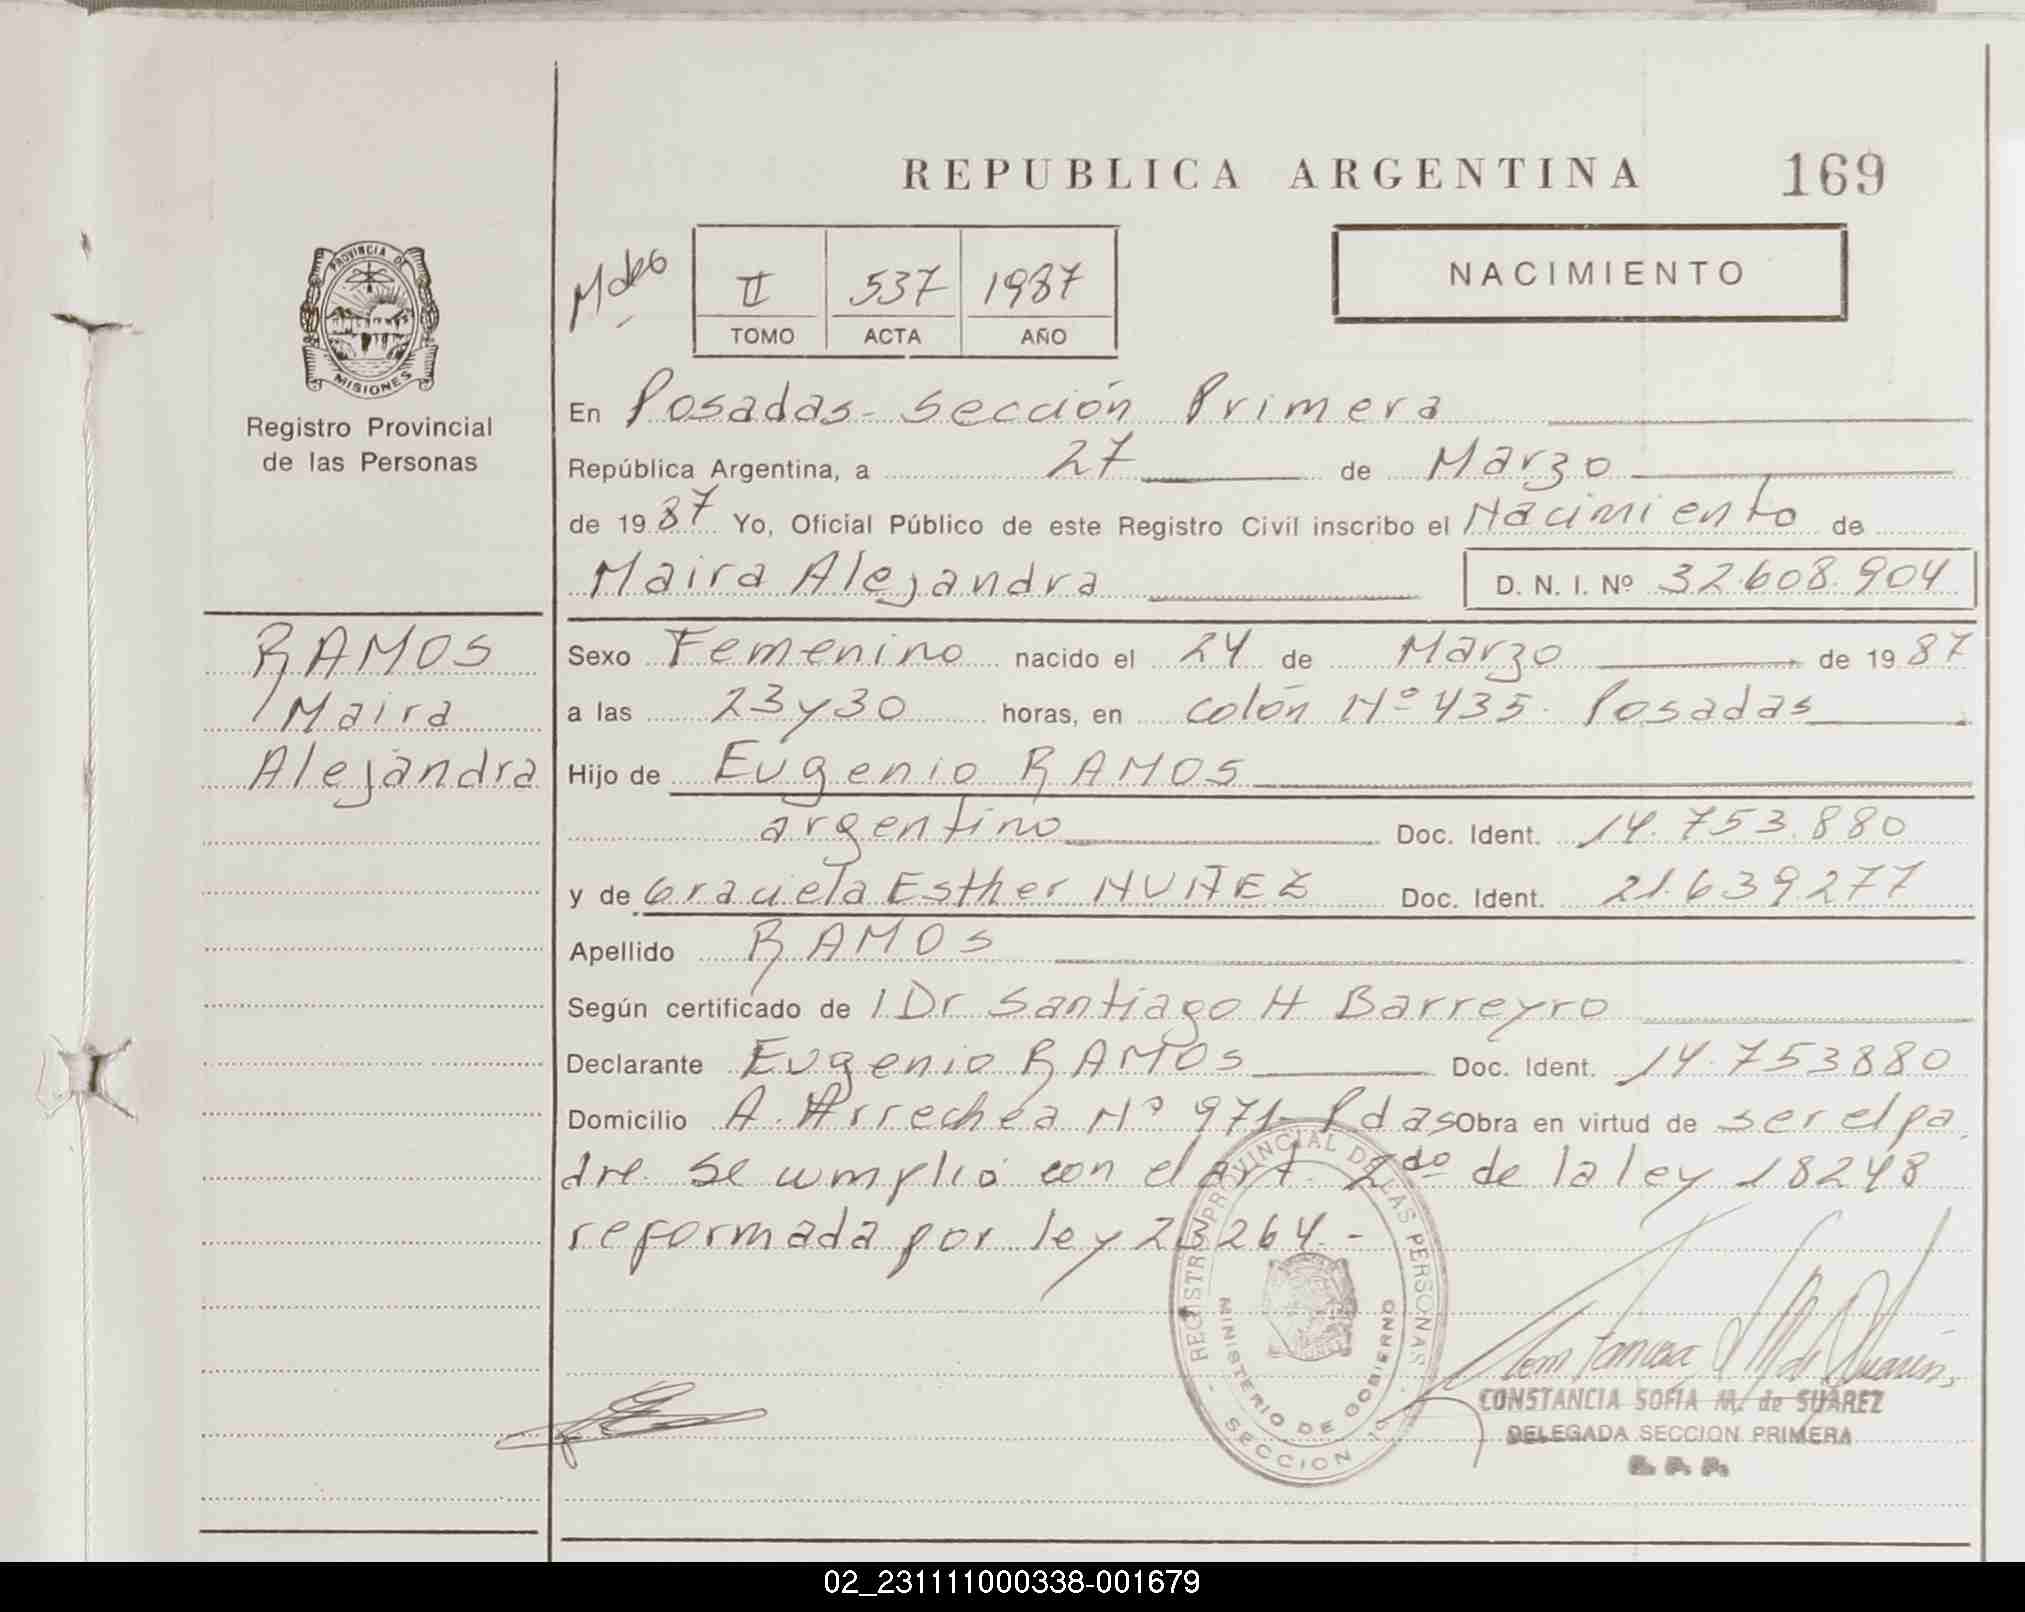 REPUBLICA ARGENTINA 169
NACIMIENTO
II 537 1987
TOMO ACTA AÑO
PROVINCIA DE
MISIONES
Registro Provincial
de las Personas
En Posadas - Sección Primera
República Argentina, a 27 de Marzo
de 1987 Yo, Oficial Público de este Registro Civil inscribo el Nacimiento de
Maira Alejandra D. N. I. Nº 32.608.904
RAMOS
Maira
Alejandra
Sexo Femenino nacido el 24 de Marzo de 1987
a las 23 y 30 horas, en colón Nº 435. Posadas
Hijo de Eugenio RAMOS
argentino Doc. Ident. 14.753.880
y de Graciela Esther NUÑEZ Doc. Ident. 21.639.277
Apellido RAMOS
Según certificado de l Dr Santiago H Barreyro
Declarante Eugenio RAMOS Doc. Ident. 14.753880
Domicilio A. Arrechea Nº 971 - Pdas Obra en virtud de ser el pa
dre. Se cumplió con el art. 2do de la ley 18248
reformada por ley 23264.-
REGISTRO PROVINCIAL DE LAS PERSONAS
MINISTERIO DE GOBIERNO
SECCION 1º
CONSTANCIA SOFIA M. de SUAREZ
DELEGADA SECCION PRIMERA
R. P. P.
02_231111000338-001679